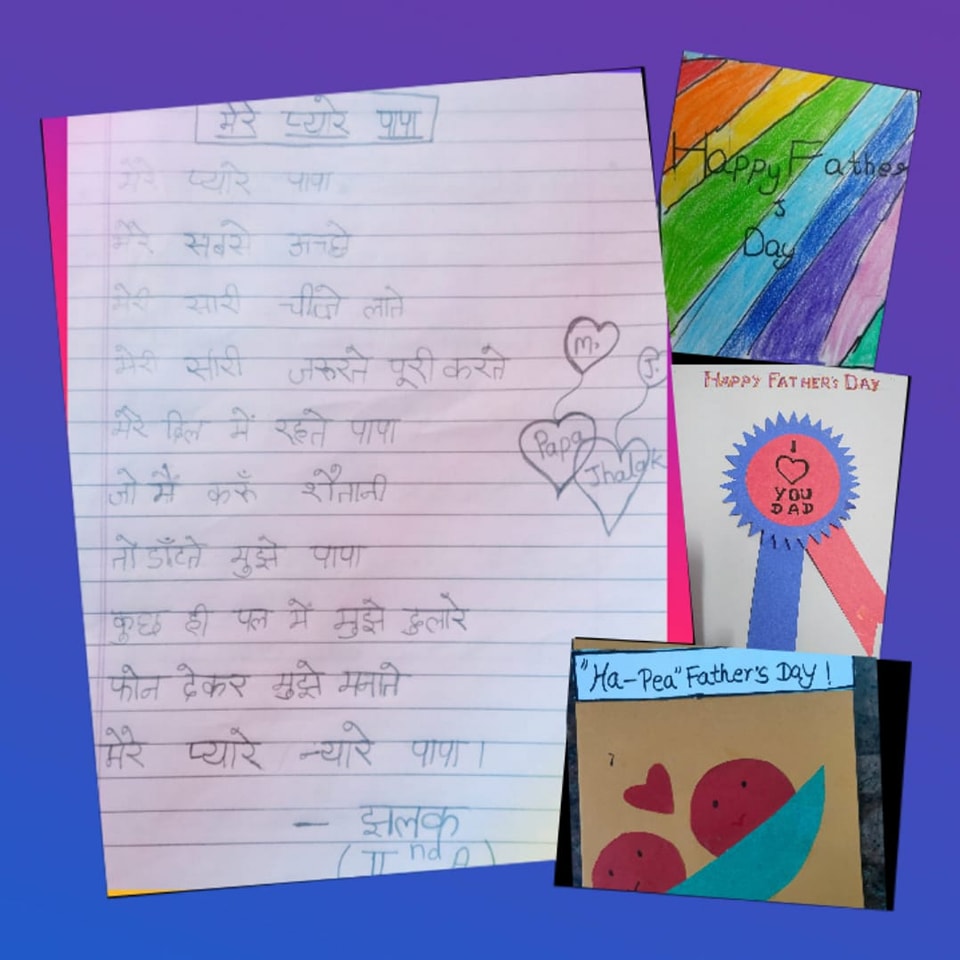 मेरे प्यारे पापा
मेरे प्यारे पापा
मेरे सबसे अच्छे
मेरी सारी चीजे लाते
मेरी सारी जरूरते पूरी करते
मेरे दिल में रहते पापा
जो मैं करूँ शैतानी
तो डाँटते मुझे पापा
कुछ ही पल में मुझे दुलारे
फोन देकर मुझे मनाते
मेरे प्यारे न्यारे पापा।
— झलक
(IInd A)
M.
J.
Papa
Jhalak
Happy Father
s
Day
HAPPY FATHER'S DAY
I
YOU
DAD
"Ha-Pea" Father's Day!